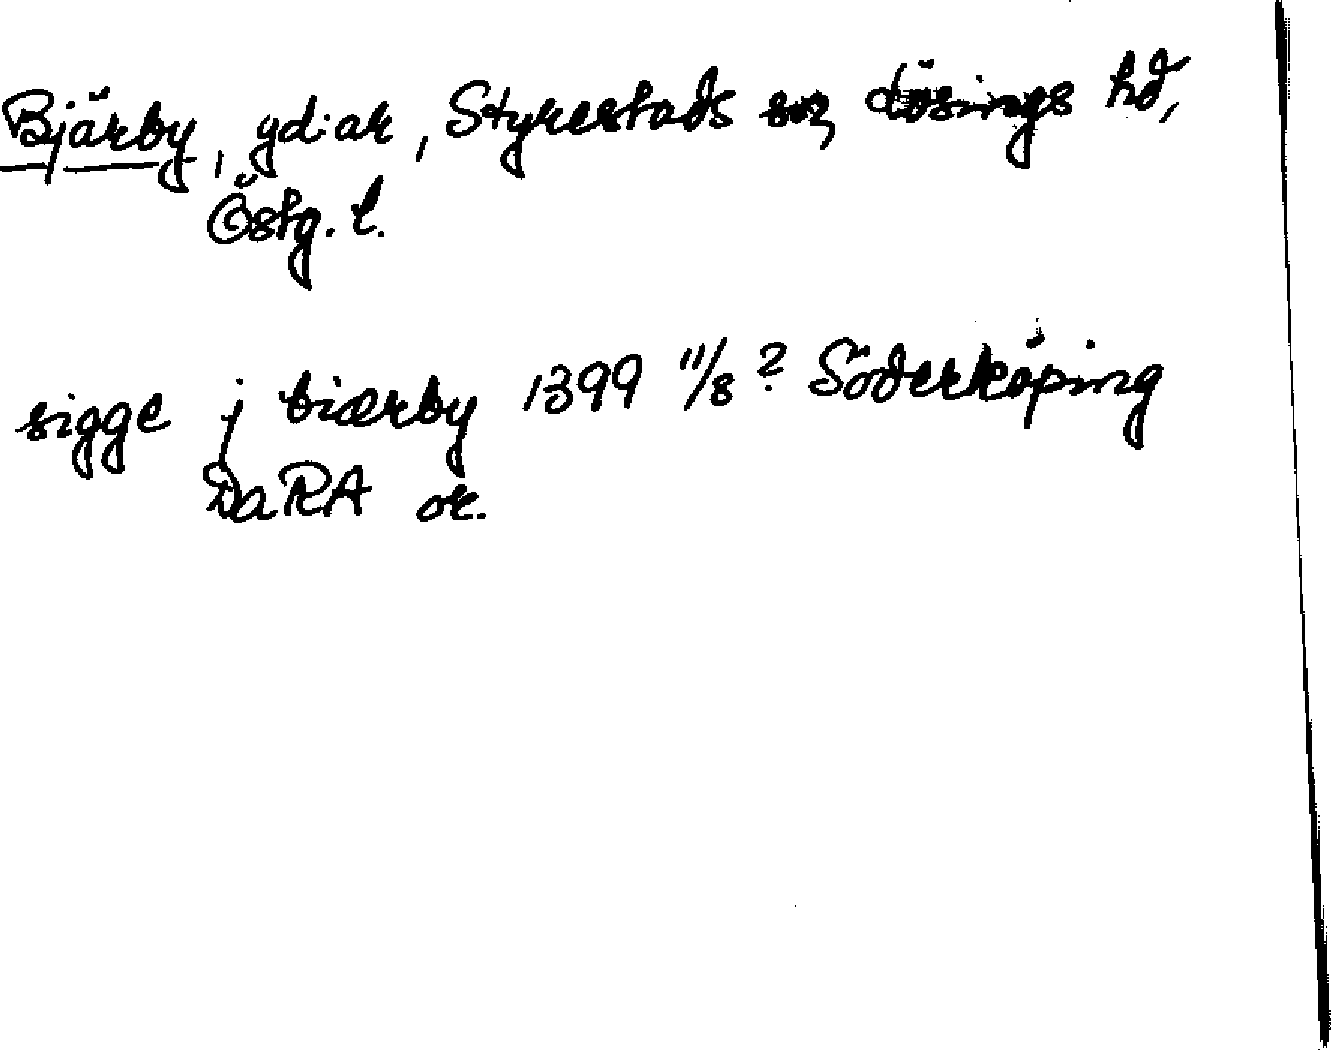 Bjärby, gd:ar, Styrestads sn, Lösings hd,
Östg. l.
sigge j biærby 1399 11/8? Söderköping
DaRA or.